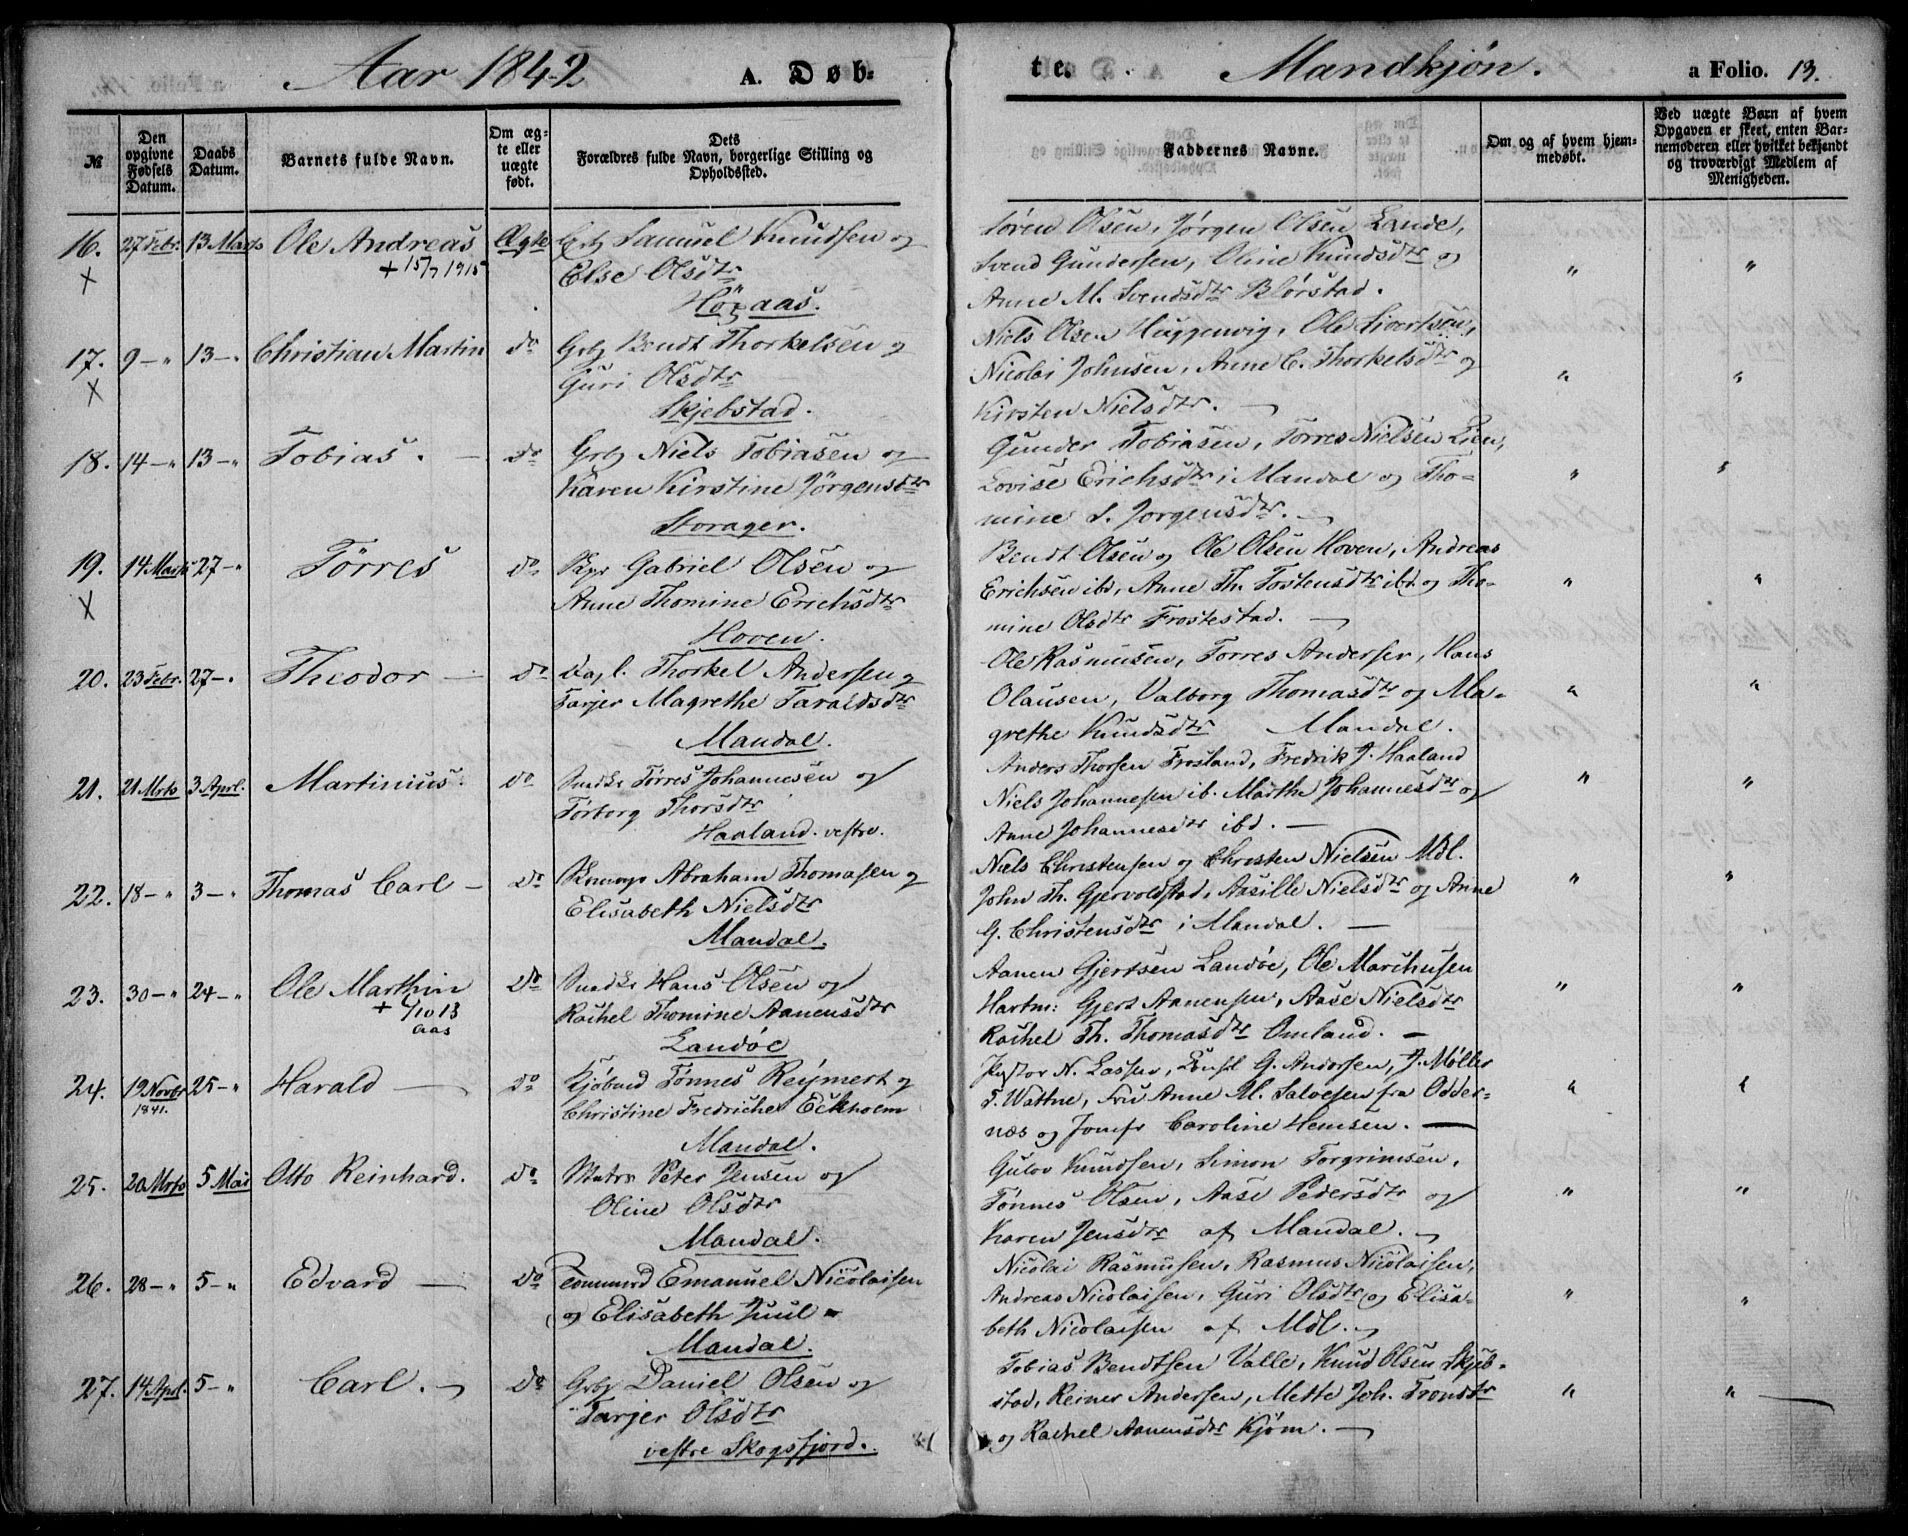 Aar 1842 A. Døb-
te. Mandkjøn. a Folio. 13.
№
Den opgivne Fødsels Datum.
Daabs Datum.
Barnets fulde Navn.
Om ægte eller uægte født.
Dets Forældres fulde Navn, borgerlige Stilling og Opholdssted.
Faddernes Navne.
Om og af hvem hjemmedøbt.
Ved uægte Børn af hvem Opgaven er skeet, enten Barnemoderen eller hvilket bekjendt og troværdigt Medlem af Menigheden.
16. 27 Febr. 13 Marts Ole Andreas Ægte Grbz Samuel Knudsen og
x + 15/7 1915 Else Olsdtr
Høyaas.
Søren Olsen, Jørgen Olsen Lande,
Svend Gundersen, Oline Knudsdtr og " "
Anne M. Svendsdtr Blørstad.
17. 9 – " 13 – " Christian Martin do Grbz Bendt Thorkelsen og
x Guri Olsdtr
Skjebstad.
Niels Olsen Huggenvig, Ole Sivertsen,
Nicolai Johnsen, Anne C. Thorkelsdtr og " "
Kirsten Nielsdtr. –
18. 14 – " 13 – " Tobias. – do Grbz Niels Tobiasen og
Karen Kirstine Jørgensdtr
Storager.
Gunder Tobiasen, Torres Nielsen Lien,
Lovise Erichsdtr i Mandal og Tho- " "
mine S. Jorgensdtr. –
19. 14 Marts 27 – " Tørres do Gabriel Olsen og
x Anne Thomine Erichsdtr
Hoven.
Bendt Olsen og Ole Olsen Hoven, Andreas
Erichsen ibd, Anne Th. Tostensdtr ibd. og Tho- " "
mine Olsdtr Frostestad. –
20. 23 Febr. 27 – " Theodor – do Dagl. Thorkel Andersen og
Tarjer Magrethe Taraldsdtr
Mandal.
Ole Rasmusen, Torres Andersen, Hans
Olausen, Valborg Thomasdtr og Ma- " "
grethe Knudsdtr Mandal.
21. 21 Mrts 3 Aprl. Martinius. do Snedkr Tørres Johannesen og
Torborg Thorsdtr
Haaland. vestre.
Anders Thorsen Frosland, Fredrik J. Haaland
Niels Johannesen ib. Marthe Johannesdtr og " "
Anne Johannesdtr ibd. –
22. 18 – " 3 – " Thomas Carl – do Abraham Thomasen og
Elisabeth Nielsdtr
Mandal.
Niels Christensen og Christen Nielsen Mdl.
John Th. Gjervoldstad, Aasille Nielsdtr og Anne " "
G. Christensdtr i Mandal. –
23. 30 – " 24 – " Ole Marthin do Snedkr Hans Olsen og
+ 6/10 13 Rachel Thomine Aanensdtr
aas Landøe
Aanen Gjertsen Landøe, Ole Marchusen
Hartm: Gjert Aanensen, Aase Nielsdtr " "
Rachel Th. Thomasdtr Omland. –
24. 19 Novbr 25 – " Harald – do Kjøbmd Tønnes Reymert og
1841. Christine Fredriche Eckholm
Mandal.
Pastor N. Lassen, Consl G. Andersen, J. Møller
T. Wattne, Fru Anne M. Salvesen fra Odder- " "
næs og Jomfr Caroline Hemsen. –
25. 20 Mrts 5 Mai Otto Reinhard. do Matrs Peter Jensen og
Oline Olsdtr
Mandal.
Gulov Knudsen, Simon Torgrimsen,
Tønnes Olsen, Aase Pedersdtr og " "
Karen Jensdtr af Mandal. –
26. 28 – " 5 – " Edvard – do Emanuel Nicolaisen
og Elisabeth Juul
Mandal.
Nicolai Rasmusen, Rasmus Nicolaisen,
Andreas Nicolaisen, Guri Olsdtr og Elisa- " "
beth Nicolaisen af Mdl. –
27. 14 Aprl. 5 – " Carl. – do Grbz Daniel Olsen og
Tarjer Olsdtr
vestre Skogsfjord.
Tobias Bendtsen Valle, Knud Olsen Skjeb-
stad, Reiner Andersen, Mette Joh. Trondsdtr " "
og Rachel Aanensdtr Kjøm. –